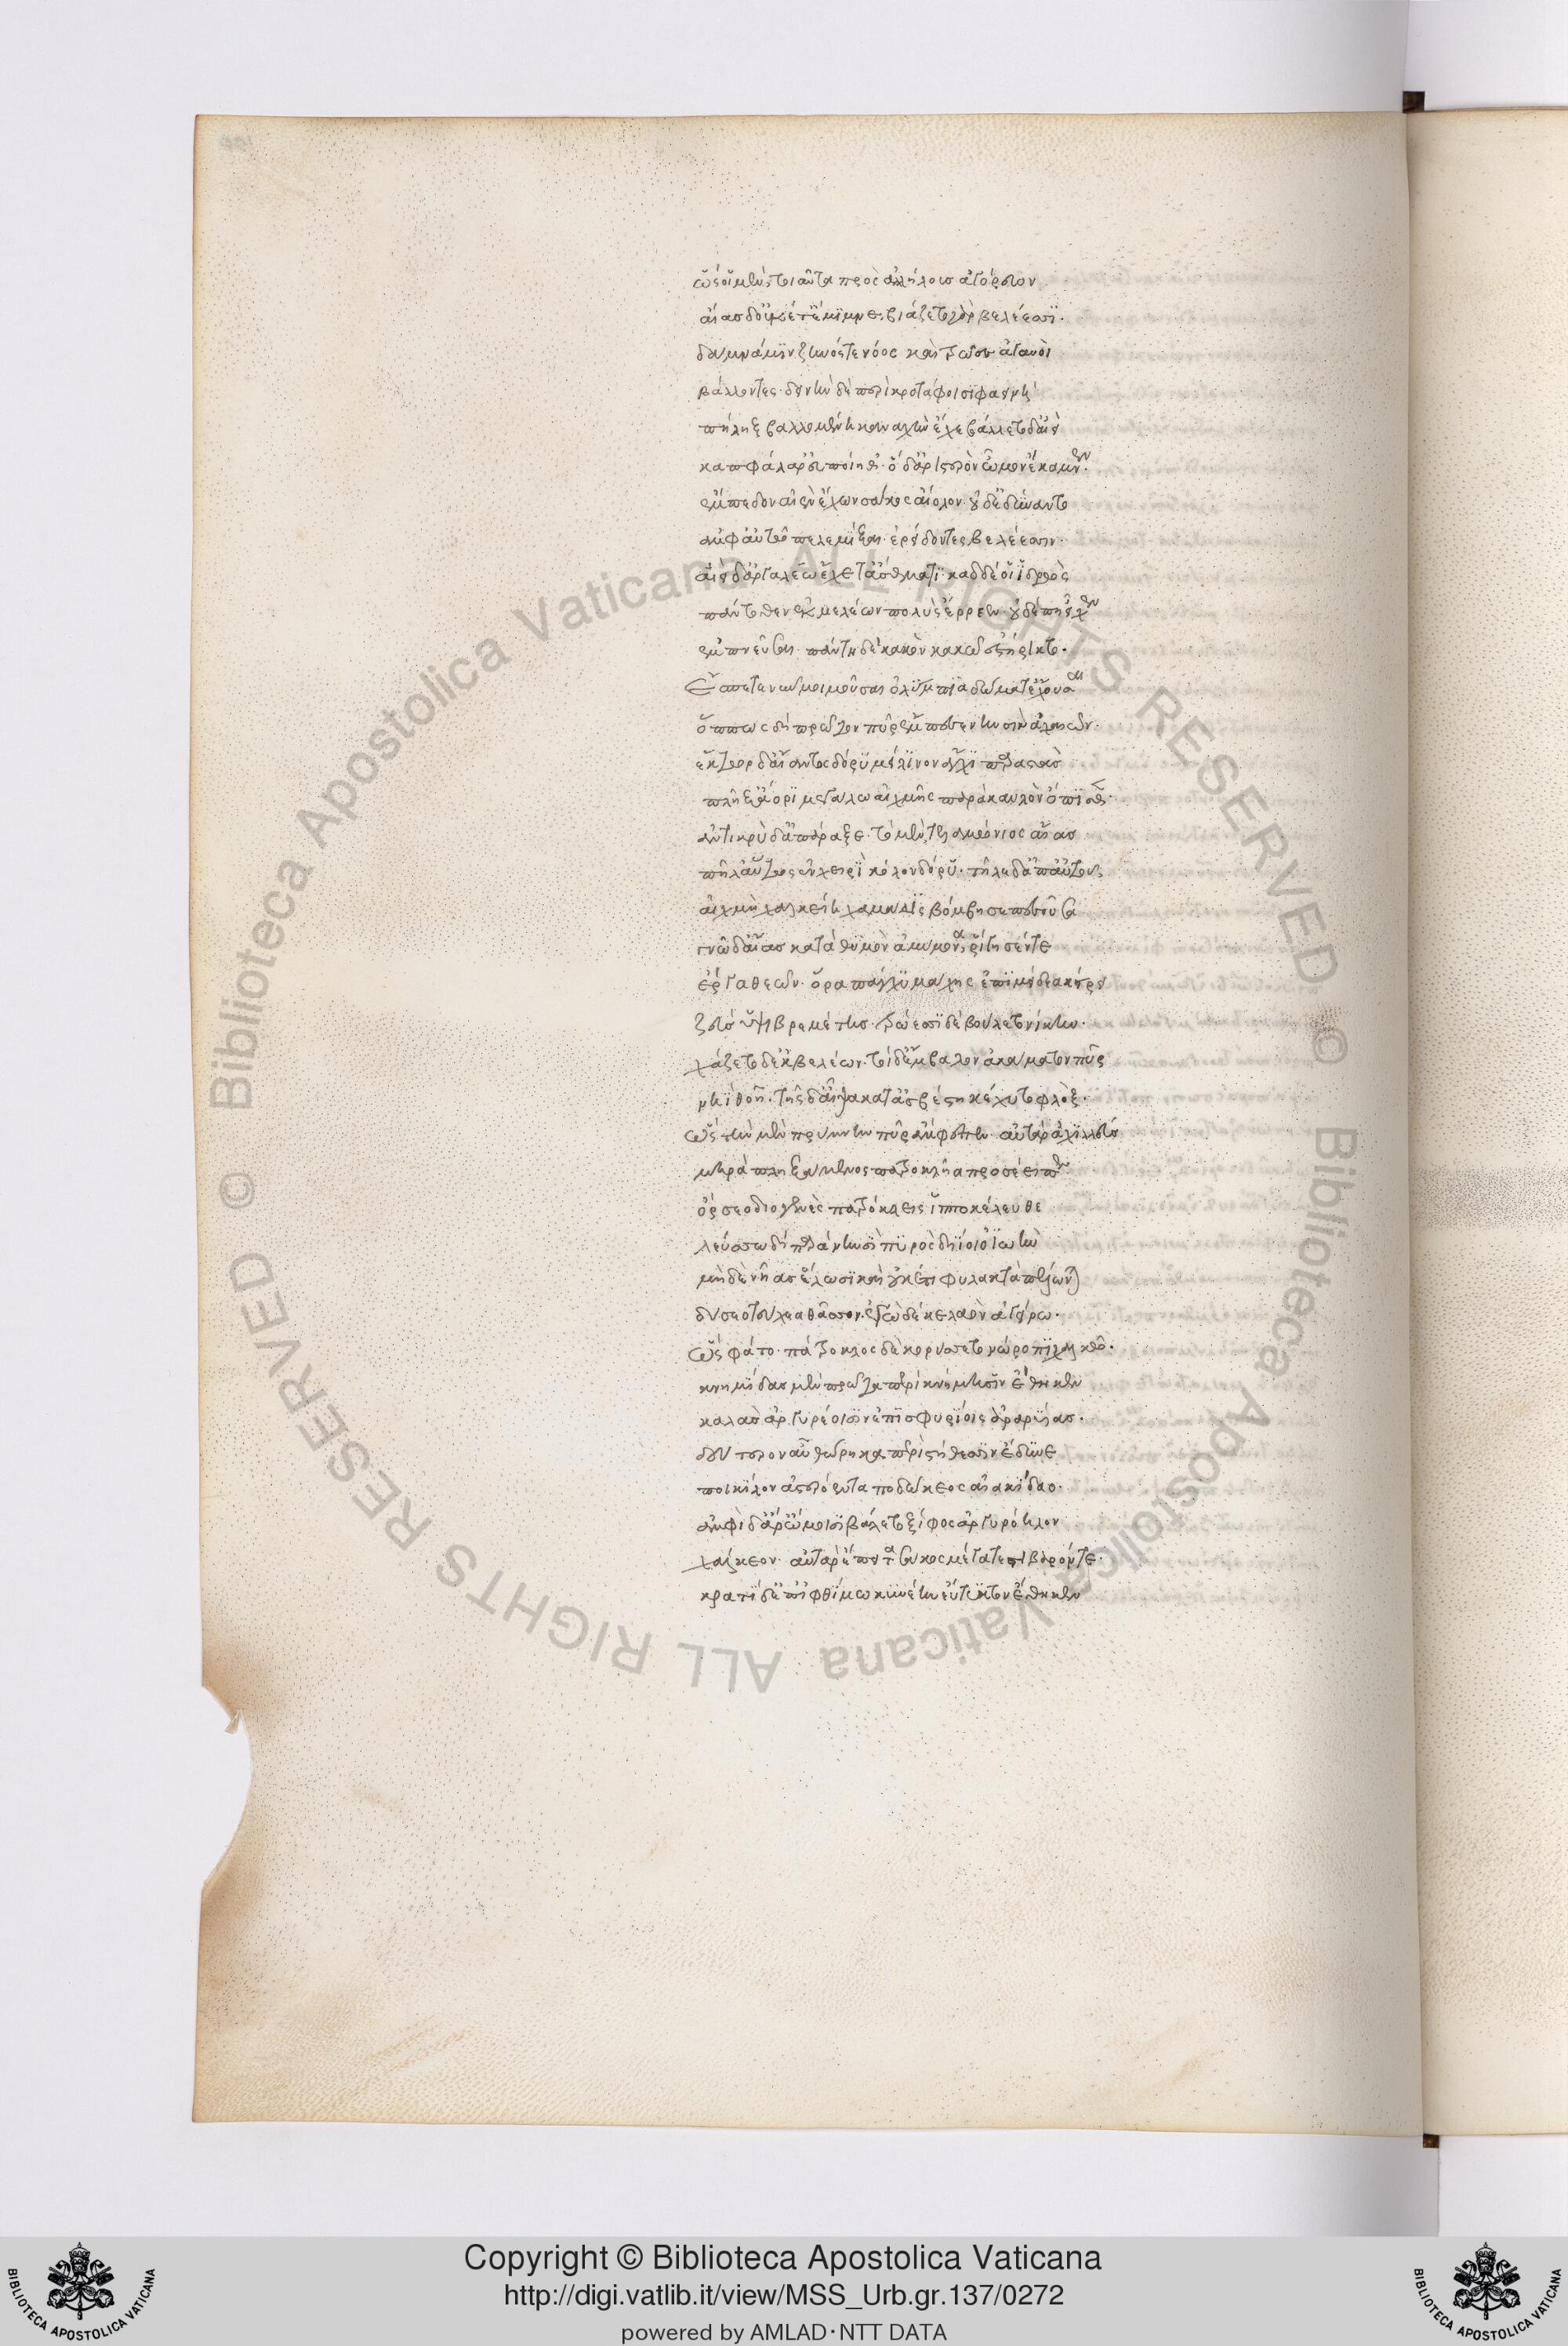 ὣς οἱ μὲν τοιαῦτα πρὸς ἀλλήλους ἀγόρευον
αἴας δ' οὐκέτ' ἔμιμνε. βιάζετο γὰρ βελέεσσι.
δάμνα μιν ζηνός τε νόος καὶ τρῶες ἀγαυοὶ
βάλλοντες. δεινὴν δὲ περὶ κροτάφοισι φαεινὴ
πήληξ βαλλομένη καναχὴν ἔχε βάλλετο δ' αἰεὶ
καπφάλαρ' εὐποίηθ'. ὁ δ' ἀριστερὸν ὦμον ἔκαμνεν.
ἔμπεδον αἰὲν ἔχων σάκος αἰόλον. οὐδ' ἐδύναντο
ἀμφ' αὐτῷ πελεμίξαι ἐρείδοντες βελέεσσιν.
αἰεὶ δ' ἀργαλέῳ ἔχετ' ἄσθματι. καδδέ οἱ ἱδρὼς
πάντοθεν ἐκ μελέων πολὺς ἔρρεεν. οὐδέ πη εἶχεν
ἀμπνεῦσαι. πάντῃ δὲ κακὸν κακῷ ἐστήρικτο.
Ἔσπετε νῦν μοι μοῦσαι ὀλύμπια δώματ' ἔχουσαι
ὅππως δὴ πρῶτον πῦρ ἔμπεσε νηυσὶν ἀχαιῶν.
ἕκτωρ δ' αἴαντος δόρυ μείλινον ἄγχι παραστὰς
πλῆξ' ἄορι μεγάλῳ αἰχμῆς παρὰ καυλὸν ὄπισθεν.
ἀντικρὺ δ' ἀπάραξε. τὸ μὲν τελαμώνιος αἴας
πῆλ' αὔτως ἐν χειρὶ κόλον δόρυ. τῆλε δ' ἀπ' αὐτοῦ
αἰχμὴ χαλκείη χαμάδις βόμβησε πεσοῦσα
γνῶ δ' αἴας κατὰ θυμὸν ἀμύμονα, ῥίγησέν τε
ἔργα θεῶν. ὅ ῥα πάγχυ μάχης ἐπὶ μήδεα κεῖρε
ζεὺς ὑψιβρεμέτης. τρώεσσι δὲ βούλετο νίκην.
χάζετο δ' ἐκ βελέων. τοὶ δ' ἔμβαλον ἀκάματον πῦρ
νηὶ θοῇ. τῆς δ' αἶψα κατ' ἀσβέστη κέχυτο φλόξ.
ὣς τὴν μὲν πρύμνην πῦρ ἄμφεπεν. αὐτὰρ ἀχιλλεὺς
μηρὼ πληξάμενος πατροκλῆα προσέειπεν
ὄρσεο διογενὲς πατρόκλεις ἱπποκέλευθε
λεύσσω δὴ παρὰ νηυσὶ πυρὸς δηίοιο ἰωὴν
μὴ δὴ νῆας ἕλωσι καὶ οὐκέτι φυκτὰ πέλωνται
δύσεο τεύχεα θᾶσσον. ἐγὼ δέ κε λαὸν ἀγείρω.
ὣς φάτο. πάτροκλος δὲ κορύσσετο νώροπι χαλκῷ.
κνημῖδας μὲν πρῶτα περὶ κνήμῃσιν ἔθηκεν
καλὰς ἀργυρέοισιν ἐπισφυρίοις ἀραρυίας.
δεύτερον αὖ θώρηκα περὶ στήθεσσιν ἔδυνε
ποικίλον ἀστερόεντα ποδώκεος αἰακίδαο.
ἀμφὶ δ' ἄρ' ὤμοισι βάλετο ξίφος ἀργυρόηλον
χάλκεον. αὐτὰρ ἔπειτα σάκος μέγα τε στιβαρόν τε.
κρατὶ δ' ἐπ' ἰφθίμῳ κυνέην εὔτυκτον ἔθηκεν
Copyright © Biblioteca Apostolica Vaticana
http://digi.vatlib.it/view/MSS_Urb.gr.137/0272
powered by AMLAD·NTT DATA
BIBLIOTECA APOSTOLICA VATICANA
BIBLIOTECA APOSTOLICA VATICANA
© Biblioteca Apostolica Vaticana ALL RIGHTS RESERVED © Biblioteca Apostolica Vaticana ALL RIGHTS RESERVED